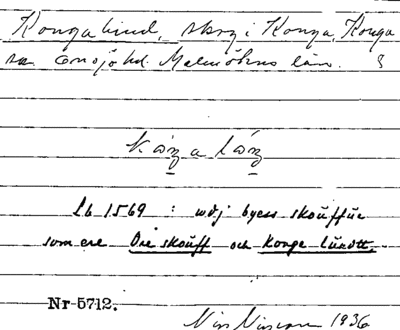 Kongalund, skog i Konga, Konga
sn Onsjö hd. Malmöhus län.
Lb 1569 : wdj byess skouffue
som ere Öre skouff och Konge lundt.
Nr 5712.
Nils Nilsson 1936